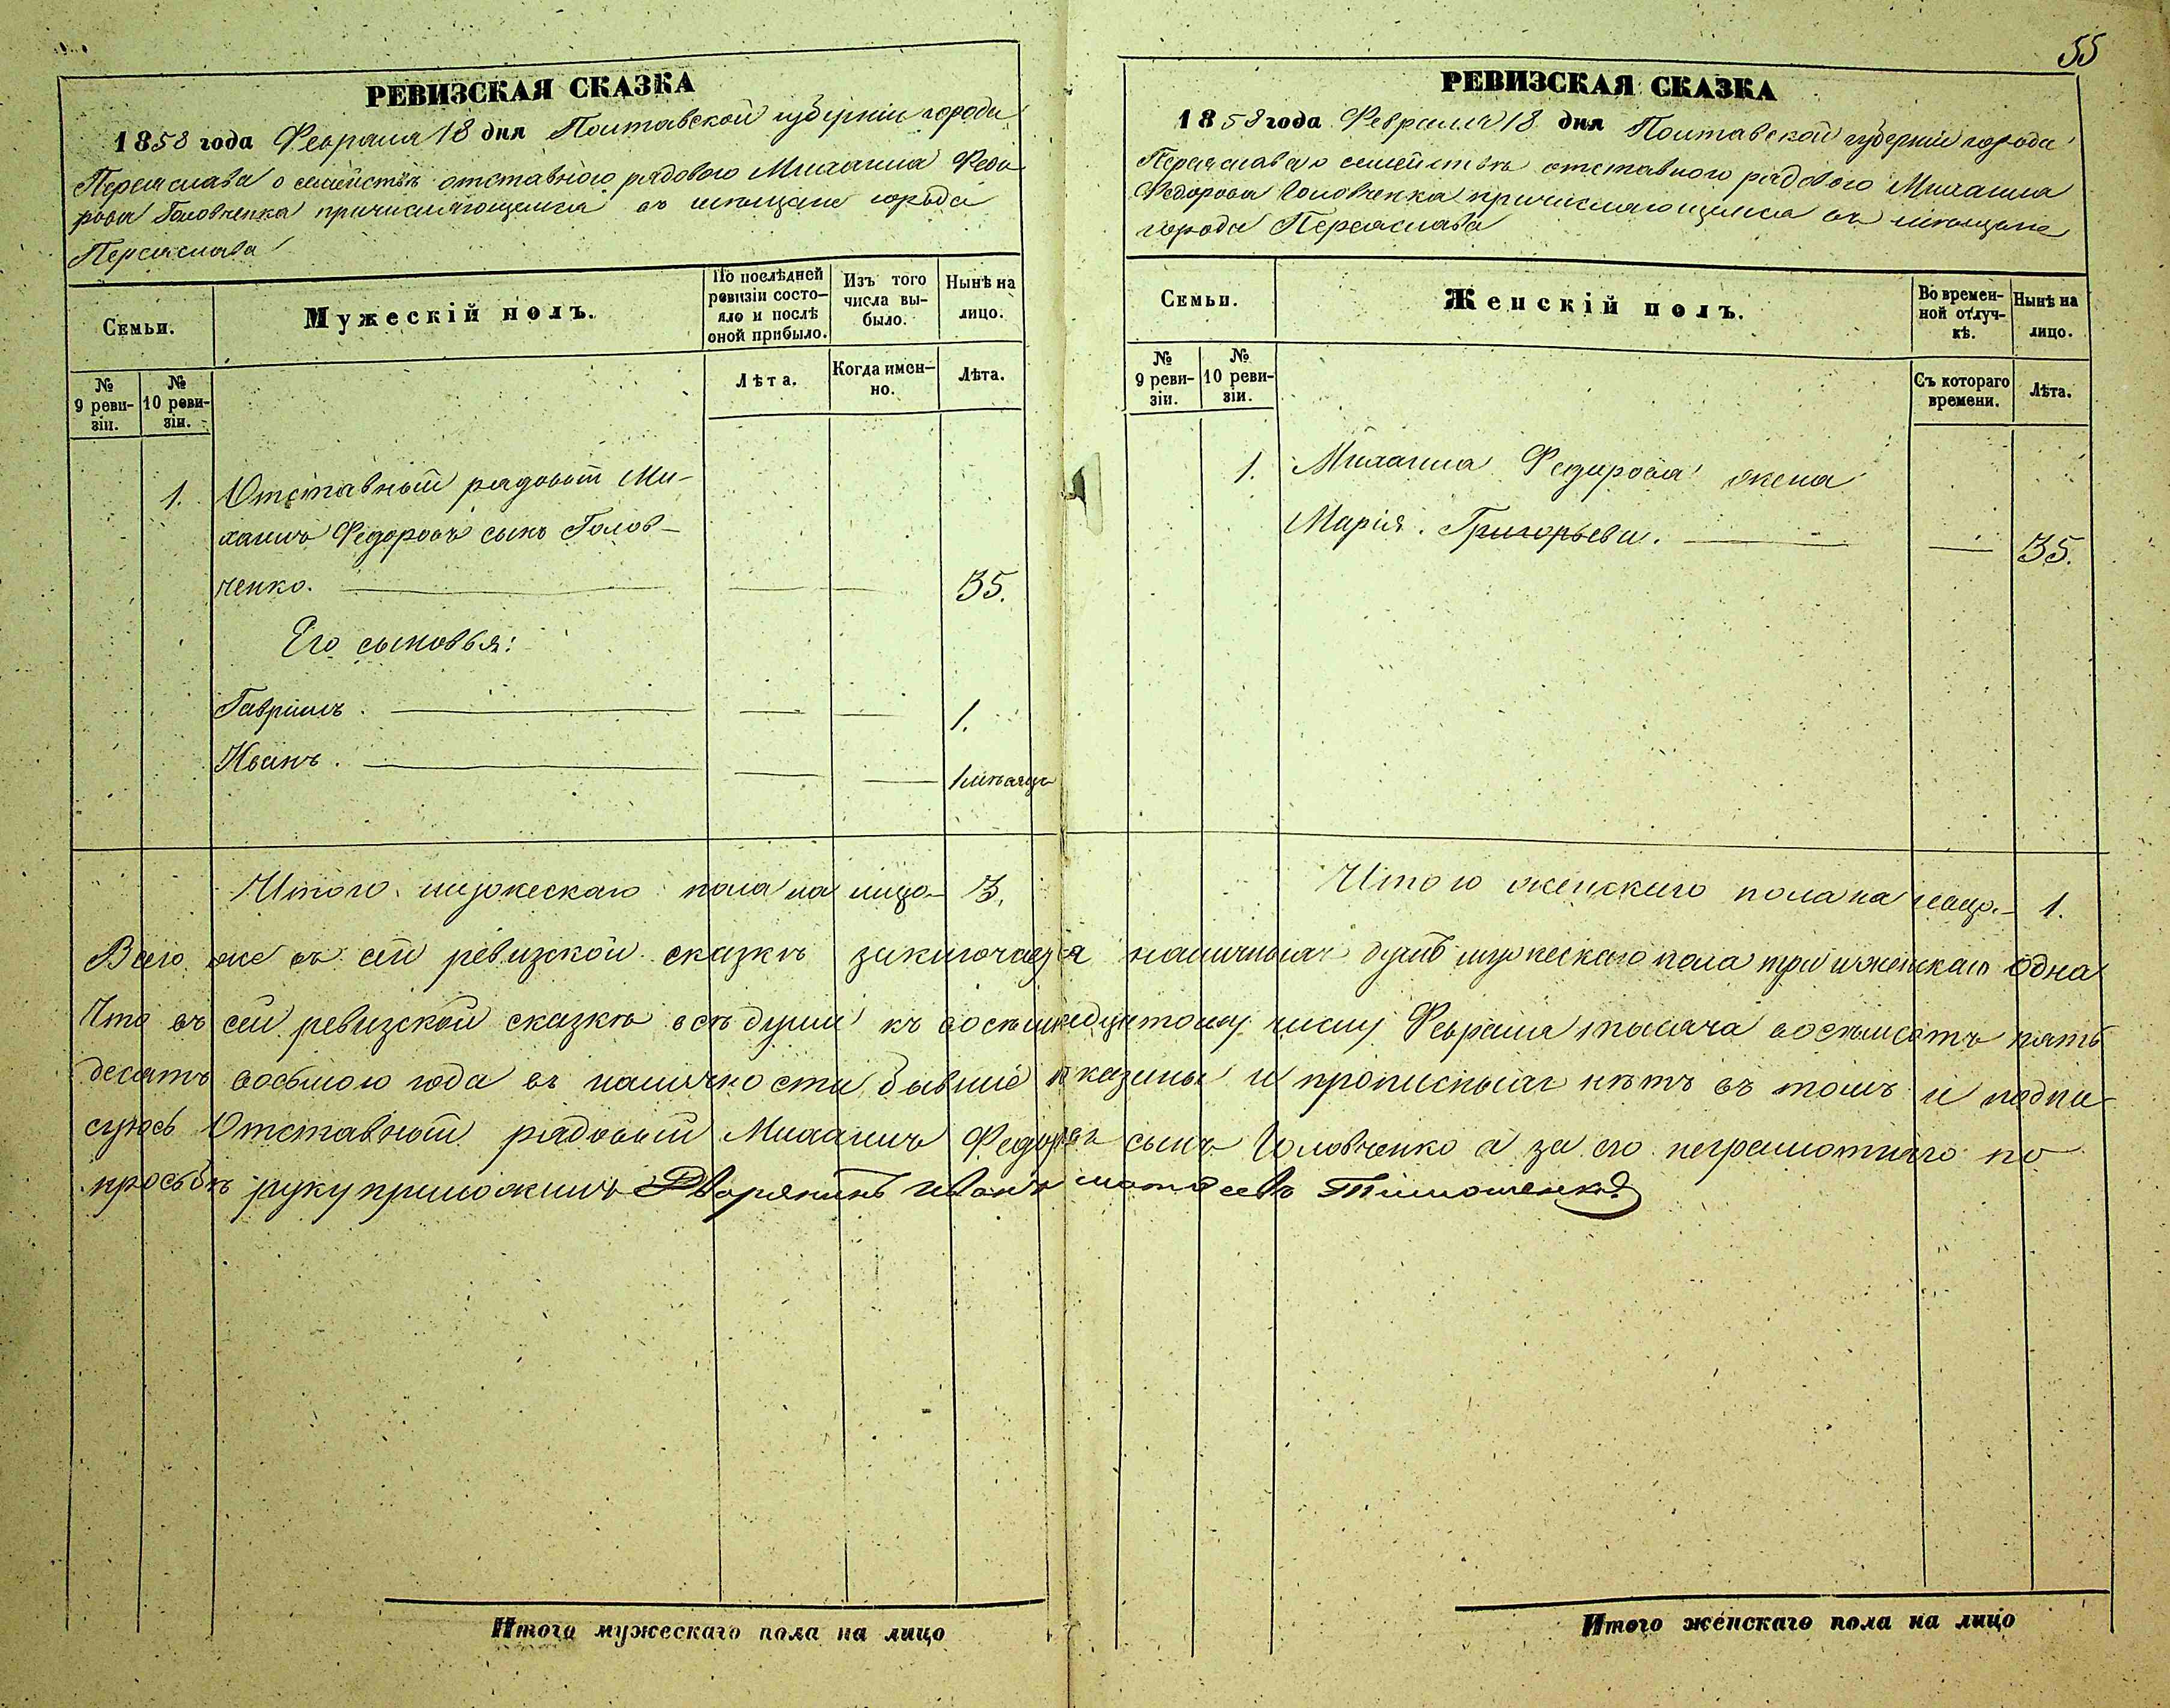 РЕВИЗСКАЯ СКАЗКА
1858 года Февраля 18 дня Полтавской губерніи города
Переяслава о семействѣ отставного рядового Михаила Федо
рова Головченка причисляющемся въ мѣщане города
Переяслава
Семьи.
Мужескій полъ.
По послѣдней ревизіи состо-
яло и послѣ оной прибыло.
Изъ того числа вы-
было.
Нынѣ на лицо.
№ 9 реви-
зіи.
№ 10 реви-
зіи.
Лѣта.
Когда имен-
но.
Лѣта.
1. Отставный рядовый Ми-
хаилъ Федоровъ сынъ Голов-
ченко. 35.
Его сыновья:
Гавріилъ. 1.
Иванъ. 1 мѣсяць
Итого мужескаго пола на лицо 3.
55
РЕВИЗСКАЯ СКАЗКА
1858 года Февраля 18 дня Полтавской губерніи города
Переяслава о семействѣ отставного рядового Михаила
Федорова Головченка причисляющемся въ мѣщане
города Переяслава
Семьи.
Женскій полъ.
Во времен-
ной отлуч-
кѣ.
Нынѣ на лицо.
№ 9 реви-
зіи.
№ 10 реви-
зіи.
Съ котораго времени.
Лѣта.
1. Михаила Федорова жена
Марія Григорьева. 35.
Итого женскаго пола на лицо. 1.
Всего же въ сей ревизкой сказкѣ заключается наличныхъ душъ мужескаго пола три и женскаго одна
Что въ сей ревизской сказкѣ всѣ души къ восемнадцатому числу Февраля тысяча восемьсотъ пять
десятъ восьмого года въ наличности бывшіе показаны и прописныхъ нѣтъ въ томъ и подпи
суюсь Отставный рядовый Михаилъ Федоровъ сынъ Головченко а за его неграмотнаго по
просьбѣ руку приложилъ Дворянинъ Иванъ Матвеевъ Тимошенко
Итого мужескаго пола на лицо
Итого женскаго пола на лицо